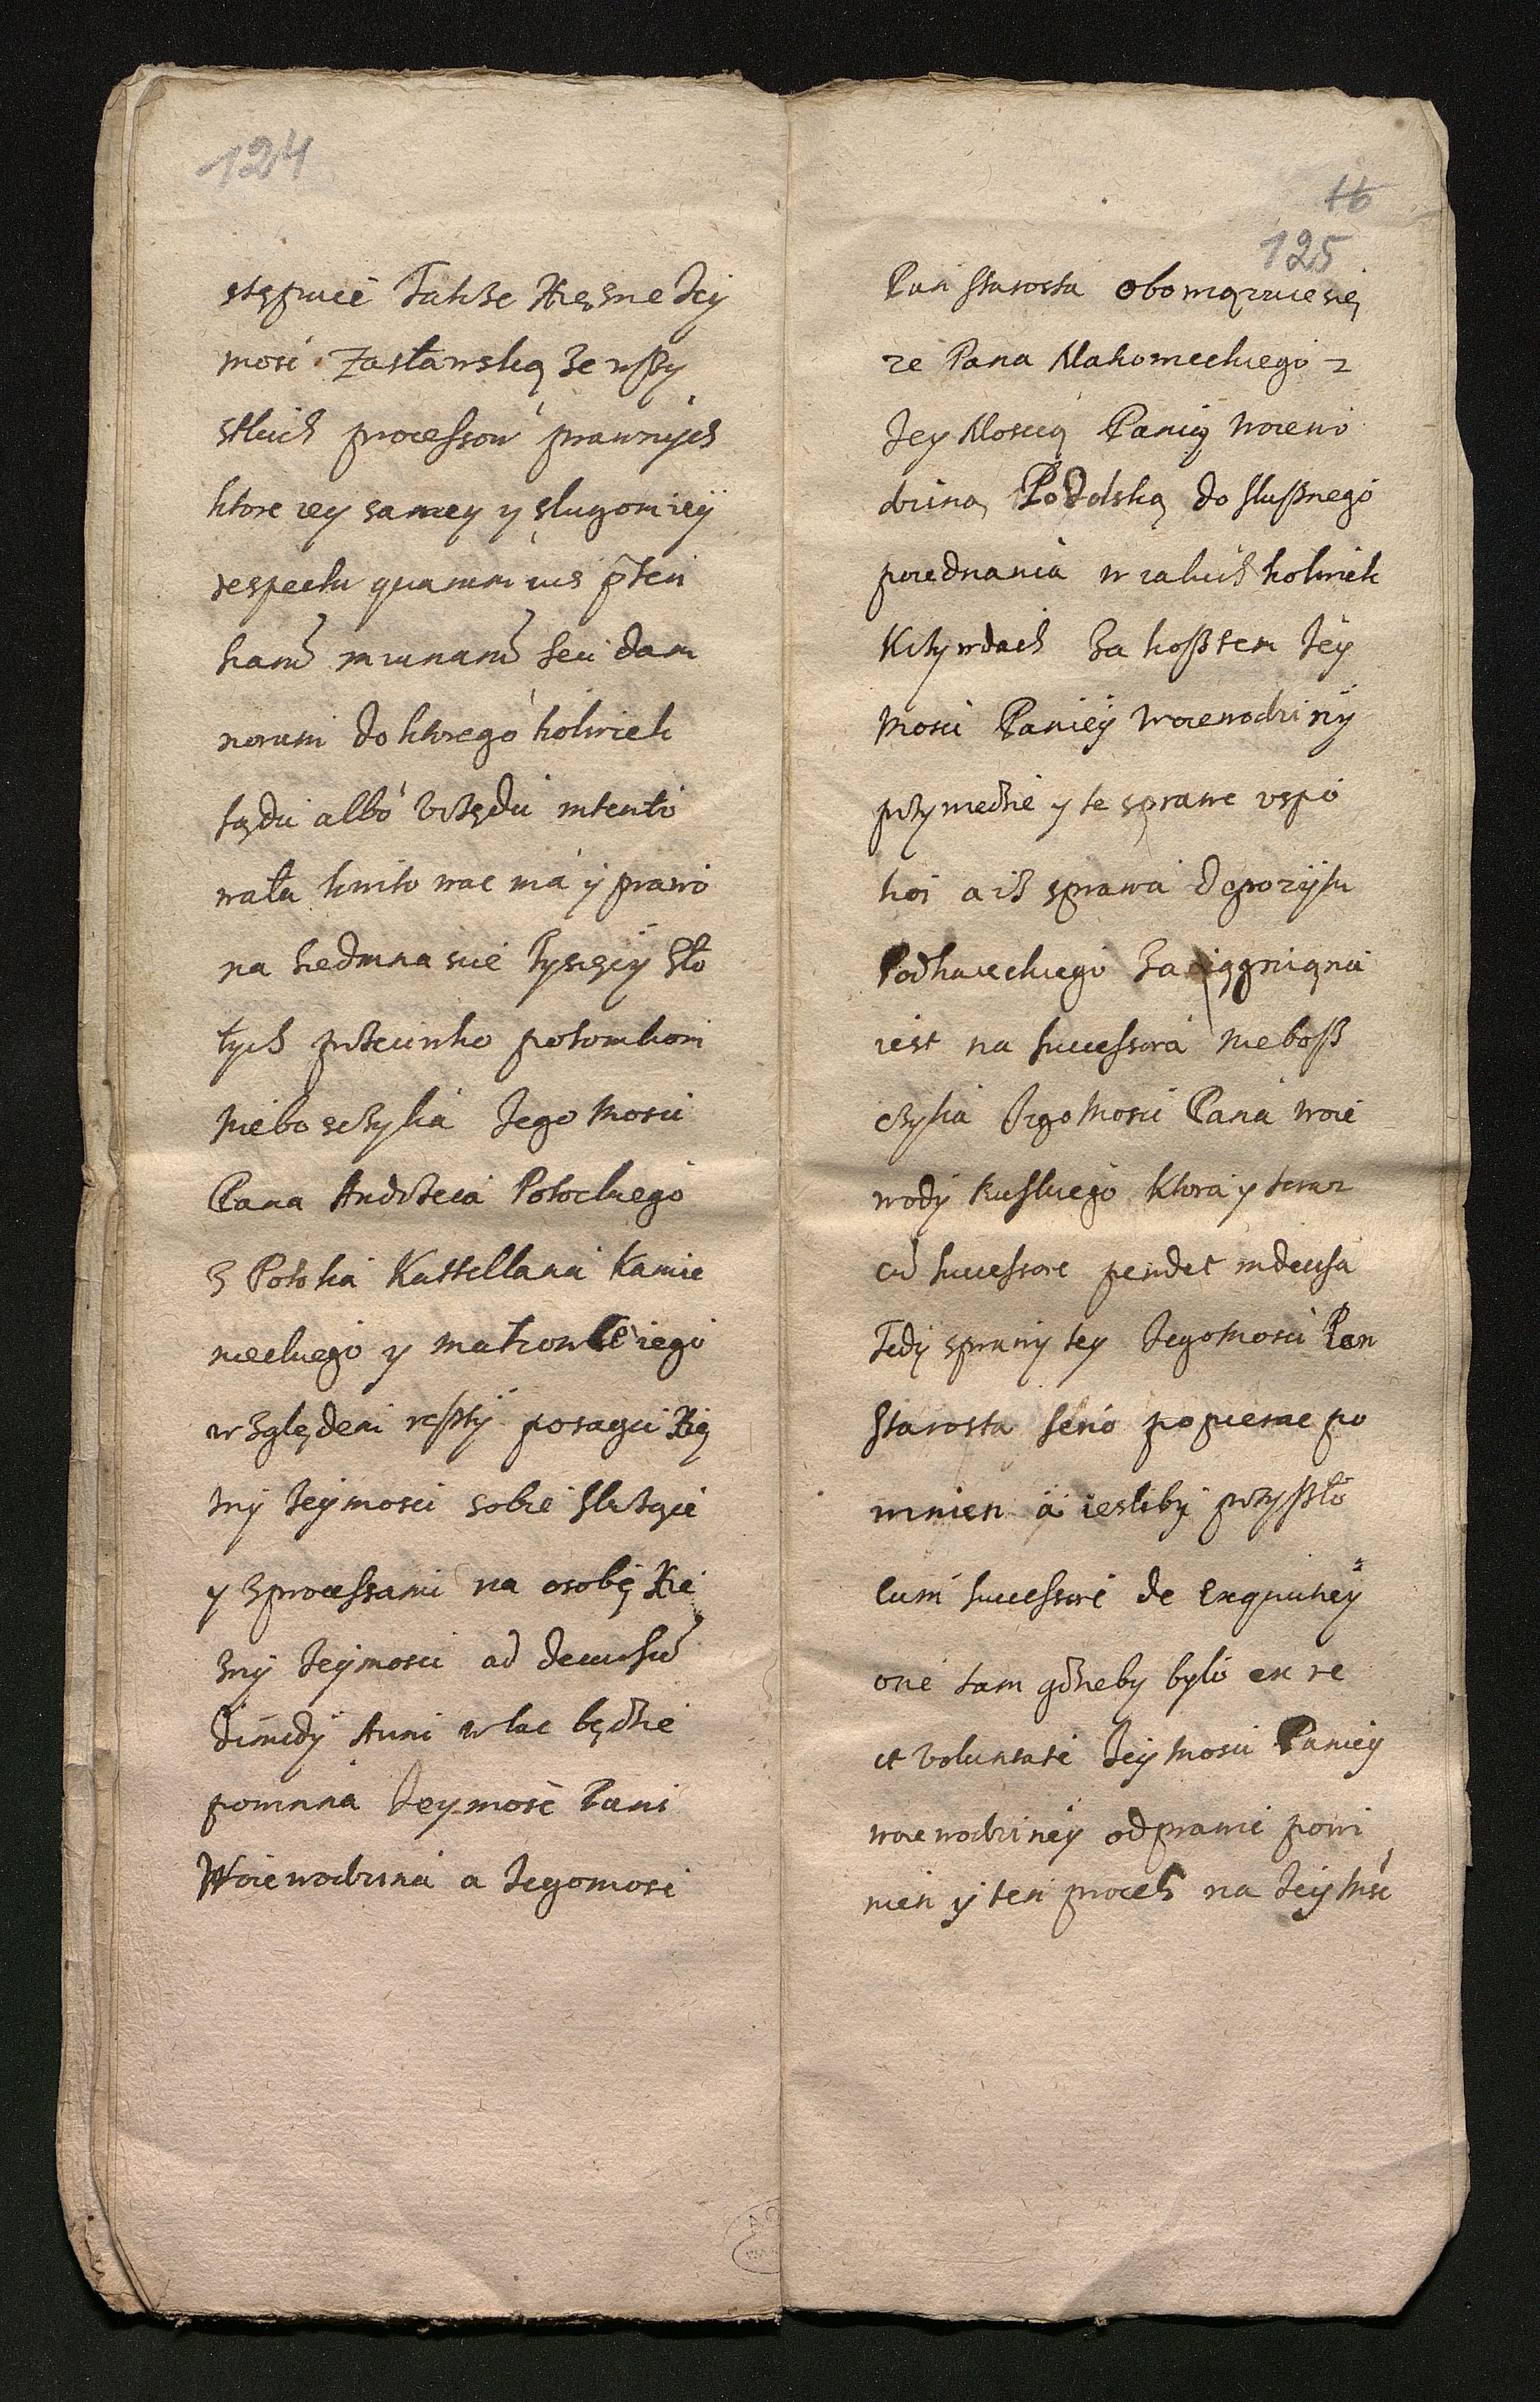 124
stępuie Także Xiężne Jey
mość Zasławską ze wszy
stkich processow prawnych
ktore iey samey y sługom iey
respectu quarumuis prten
sarum iniuriarum seu dam
norum do ktorego kolwiek
sądu albo Vrzędu intento
wała kwitować ma y prawo
na siedmnascie tysięcy zło
tych przeciwko potomkom
nieboszczyka Jego Mosci
Pana Andrzeia Potockiego
z Potoka Kasztellana Kamie
nieckiego y małżonce iego
względem reszty posagu Xię
żny Jeymosci sobie służące
y z processami na osobę Xię
żny Jeymosci ad decursum
wlac będzie
powinna Jeymość Pani
Woiewodzina a Jegomość
16
125
Pan Starosta obowięzuie się
że Pana Makowieckiego z
Jey Moscią Panią Woiewo
dziną Podolską do słusznego
poiednania w iakich kolwiek
Krzywdach za kosztem Jey
Mosci Paniey Woiewodziny
przywiedzie y te sprawe vspo
koi a iż sprawa Depozytu
Podhaieckiego zaciągniona
iest na Successora niebosz
czyka Jego Mosci Pana Woie
wody Ruskiego Ktora y teraz
cum Successore pendet indecisa
Tedy sprawy tey Jegomosci Pan
Starosta serio popierac po
winien a iesliby przyszło
cum Successore de exequutiey
one tam gdzieby było ex re
et voluntate Jey Mosci Paniey
woiewodziney odprawic powi
nien y ten proces na Jey Mść